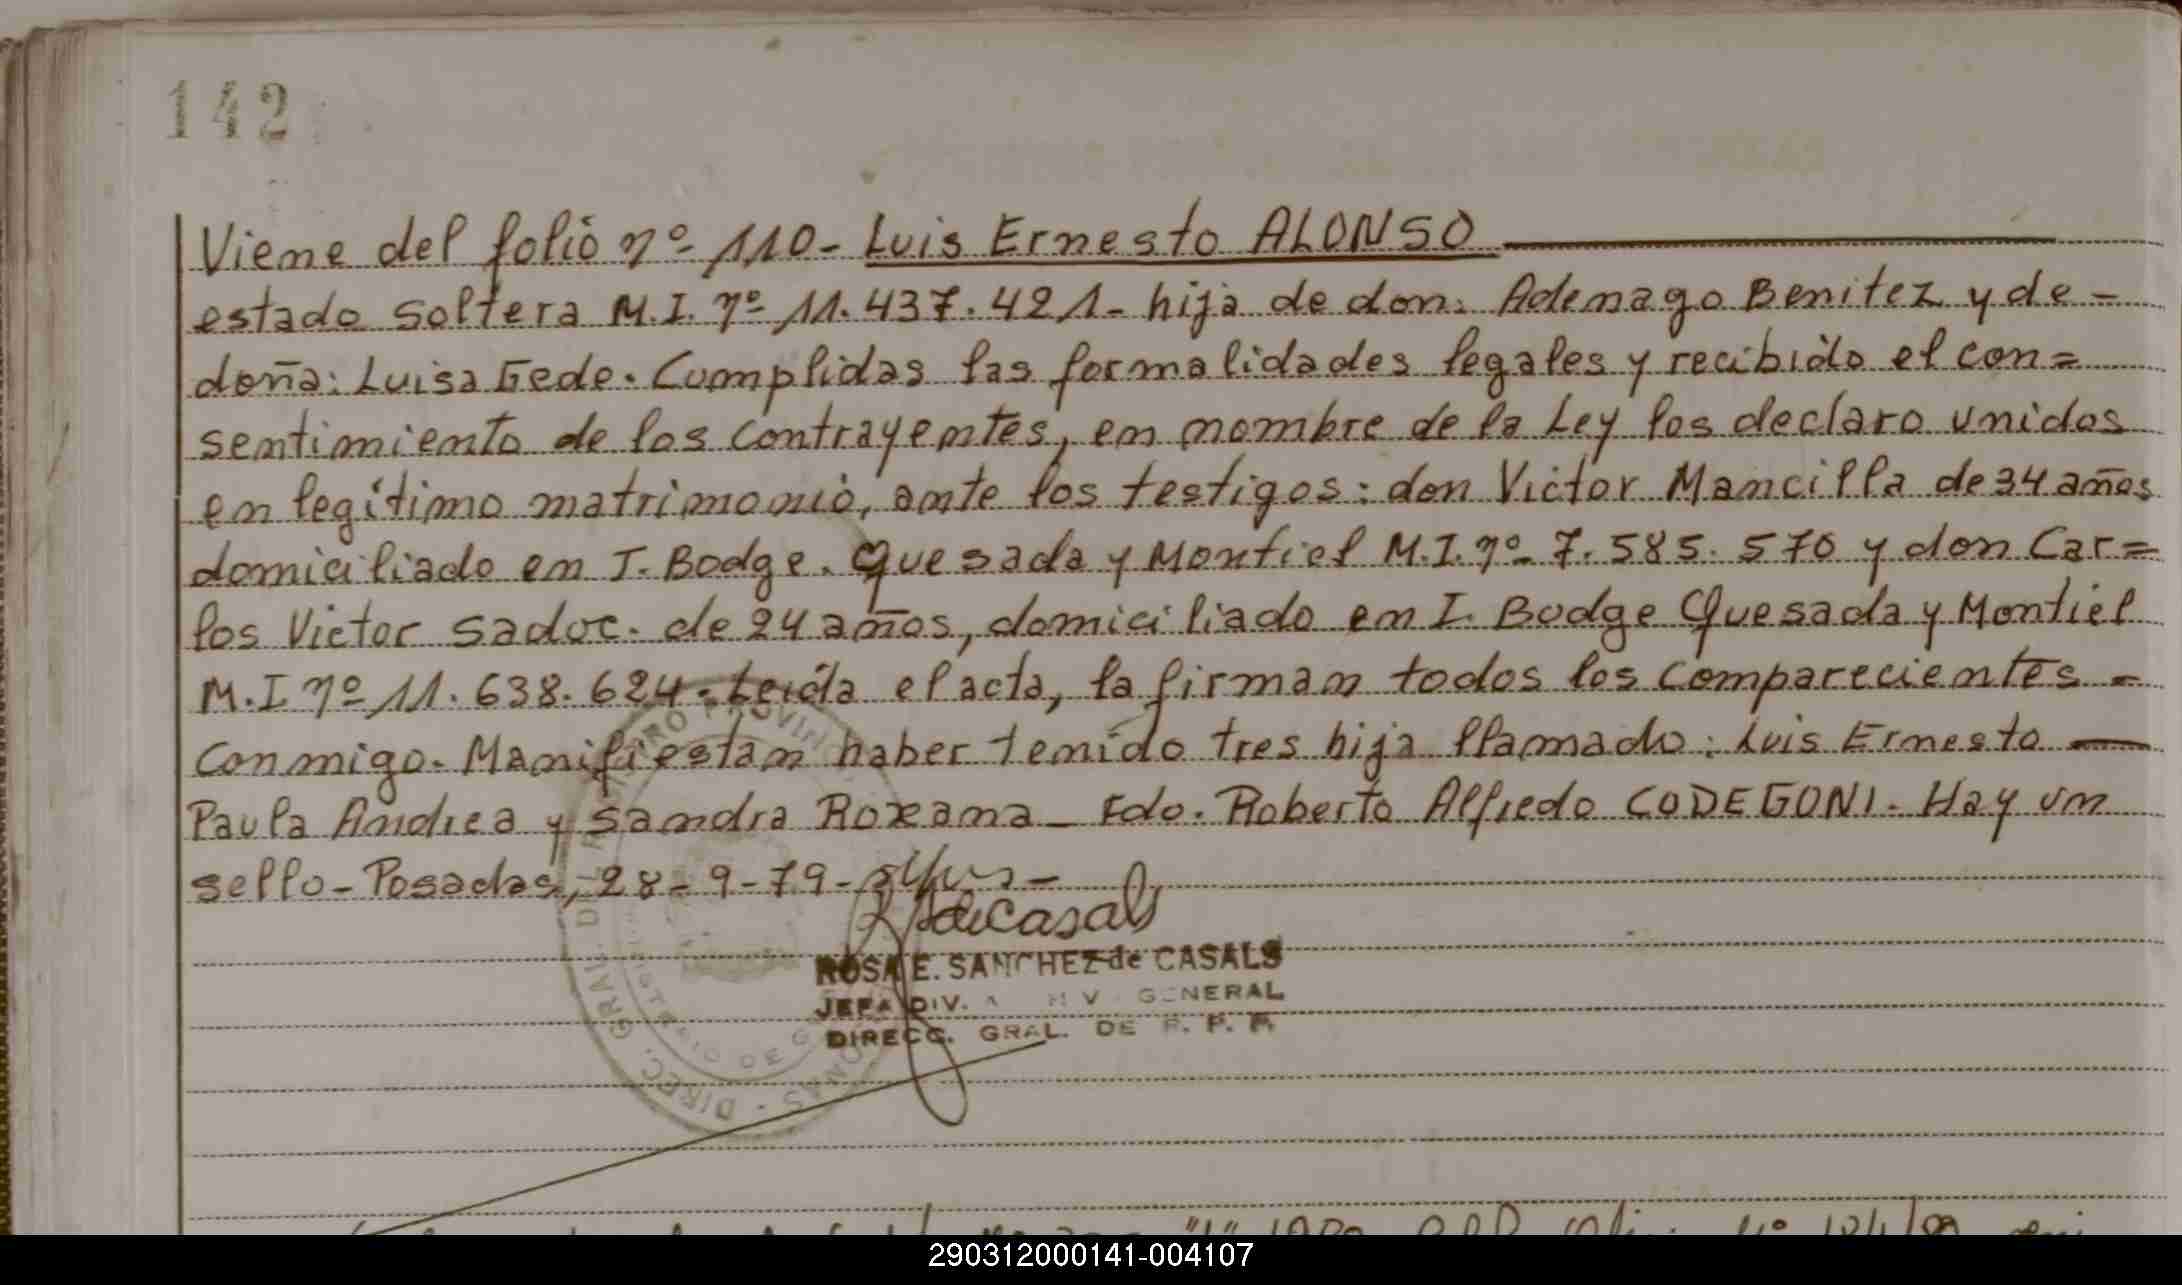 142
Viene del folio nº 110- Luis Ernesto ALONSO
estado soltera M.I. nº 11.437.421- hija de don: Adenago Benitez y de -
doña: Luisa Gede. Cumplidas las formalidades legales y recibido el con=
sentimiento de los contrayentes, en nombre de la Ley los declaro unidos
en legítimo matrimonio, ante los testigos: don Victor Mancilla de 34 años
domiciliado en I. Bodge. Quesada y Montiel M.I. nº 7.585.570 y don Car=
los Victor Sadoc. de 24 años, domiciliado en I. Budge Quesada y Montiel
M.I nº 11.638.624. Leida el acta, la firman todos los comparecientes -
conmigo. Manifiestan haber tenido tres hija llamado: Luis Ernesto
Paula Andrea y Sandra Roxana - Fdo. Roberto Alfredo CODEGONI. Hay un
sello-Posadas, 28-9-79-
ROSA E. SANCHEZ de CASALS
JEFA DIV. GENERAL
DIRECC. GRAL. DE R. P. P.
290312000141-004107